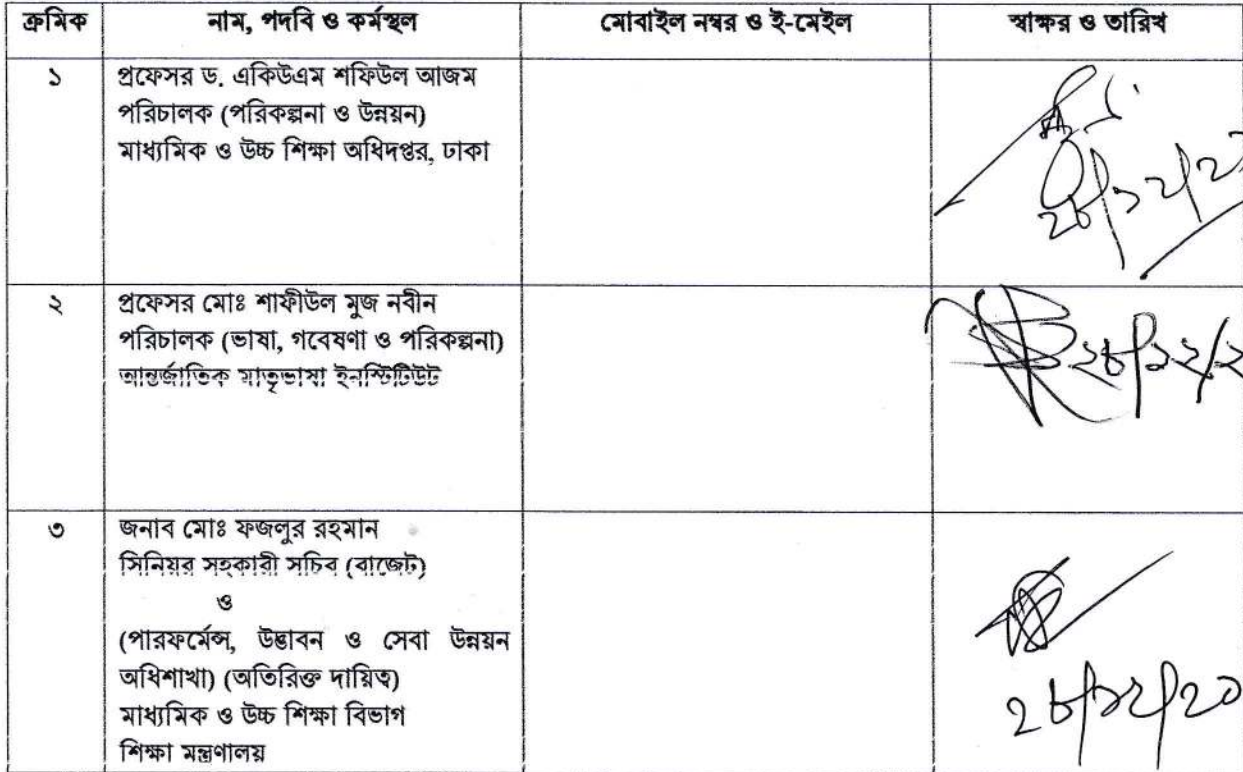 ক্রমিক নাম, পদবি ও কর্মস্থল মোবাইল নম্বর ও ই-মেইল স্বাক্ষর ও তারিখ
১ প্রফেসর ড. একিউএম শফিউল আজম
পরিচালক (পরিকল্পনা ও উন্নয়ন)
মাধ্যমিক ও উচ্চ শিক্ষা অধিদপ্তর, ঢাকা
২৮/১২/২
২ প্রফেসর মোঃ শাফীউল মুজ নবীন
পরিচালক (ভাষা, গবেষণা ও পরিকল্পনা)
আন্তর্জাতিক মাতৃভাষা ইনস্টিটিউট
২৮/১২/২
৩ জনাব মোঃ ফজলুর রহমান
সিনিয়র সহকারী সচিব (বাজেট)
ও
(পারফর্মেন্স, উদ্ভাবন ও সেবা উন্নয়ন
অধিশাখা) (অতিরিক্ত দায়িত্ব)
মাধ্যমিক ও উচ্চ শিক্ষা বিভাগ
শিক্ষা মন্ত্রণালয়
২৮/১২/২০